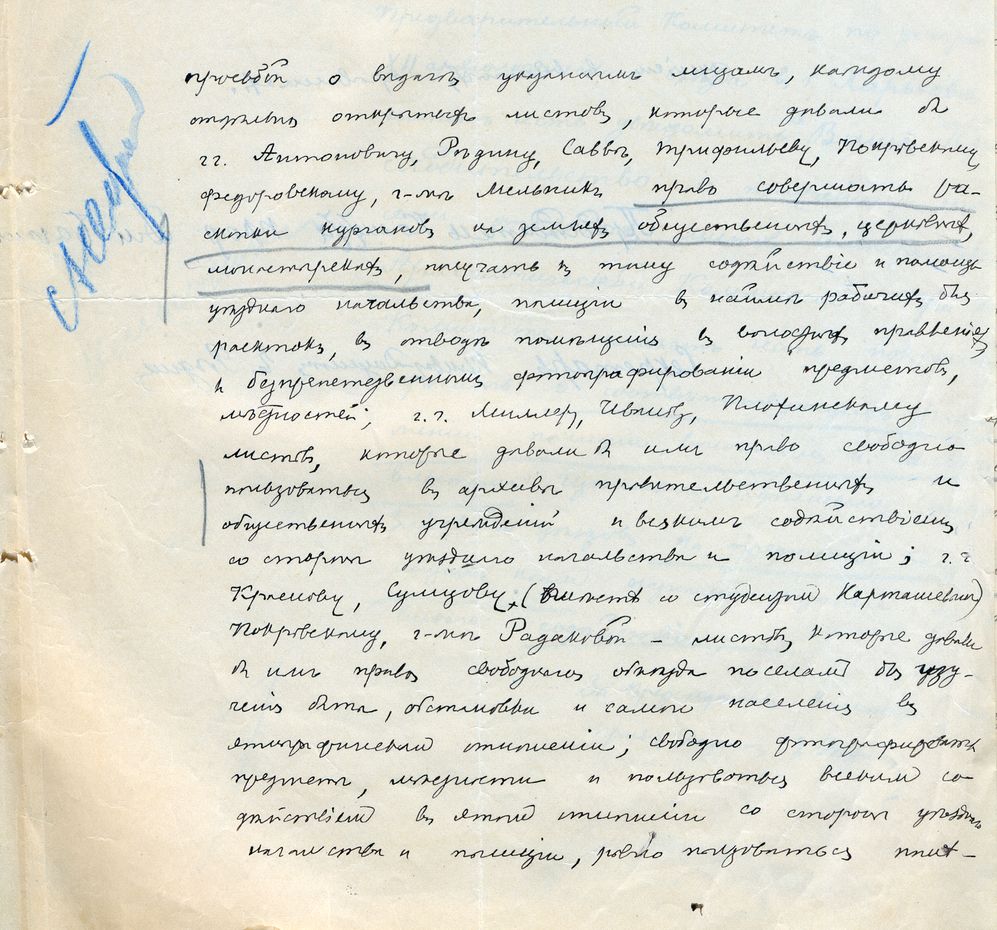 просьбой о выдаче указаннымъ лицамъ, каждому
отдѣльно открытыхъ листовъ, которые давали бы
гг. Антоновичу, Рѣдину, Саввѣ, Трифильеву, Покровскому,
Федоровскому, г-жѣ Мельникъ право совершать ра-
скопки кургановъ на земляхъ общественныхъ, церковныхъ,
монастырскихъ, получать къ тому содѣйствіе и помощь
уѣзднаго начальства, полиціи въ наймѣ рабочихъ для
раскопокъ, въ отводѣ помѣщенія въ волостныхъ правленіяхъ
и безпрепятственномъ фотографированіи предметовъ,
мѣстностей; г.г. Миллеру, Иванову, Плохинскому
листовъ, которые давали бы имъ право свободно
пользоваться въ архивы правительственныхъ и
общественныхъ учрежденій и всякимъ содѣйствіемъ
со стороны уѣзднаго начальства и полиціи; г.г.
Краснову, Сумцову, (вмѣстѣ со студентомъ Карташевымъ)
Покровскому, г-жѣ Радаковой – листовъ, которые давали
бы имъ право свободнаго объѣзда по селамъ для изу-
ченія быта, обстановки и самого населенія въ
этнографическомъ отношеніи; свободно фотографировать
предметы, мѣстности и пользоваться всякимъ со-
дѣйствіемъ въ этомъ отношеніи со стороны уѣзднаго
начальства и полиціи, равно пользоваться